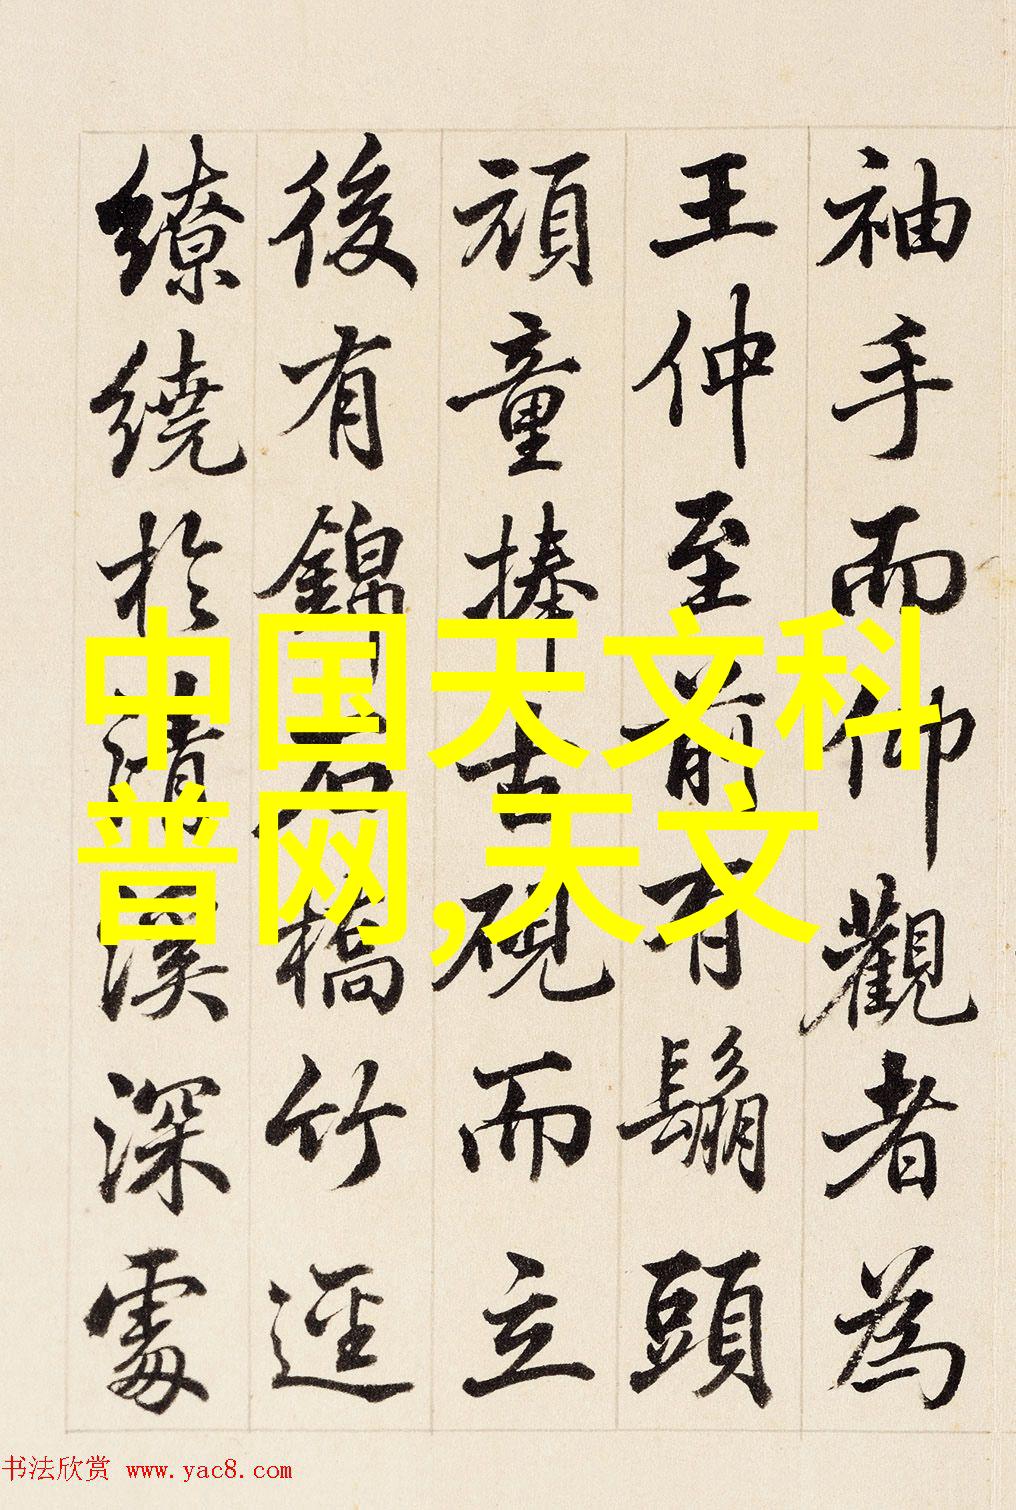 袖手而仰觀者為
王仲至前有鬅頭
頑童捧古硯而立
後有錦石橋竹逕
繚繞於清溪深處
中国天文科
普网,天文
书法欣赏 www.yac8.com